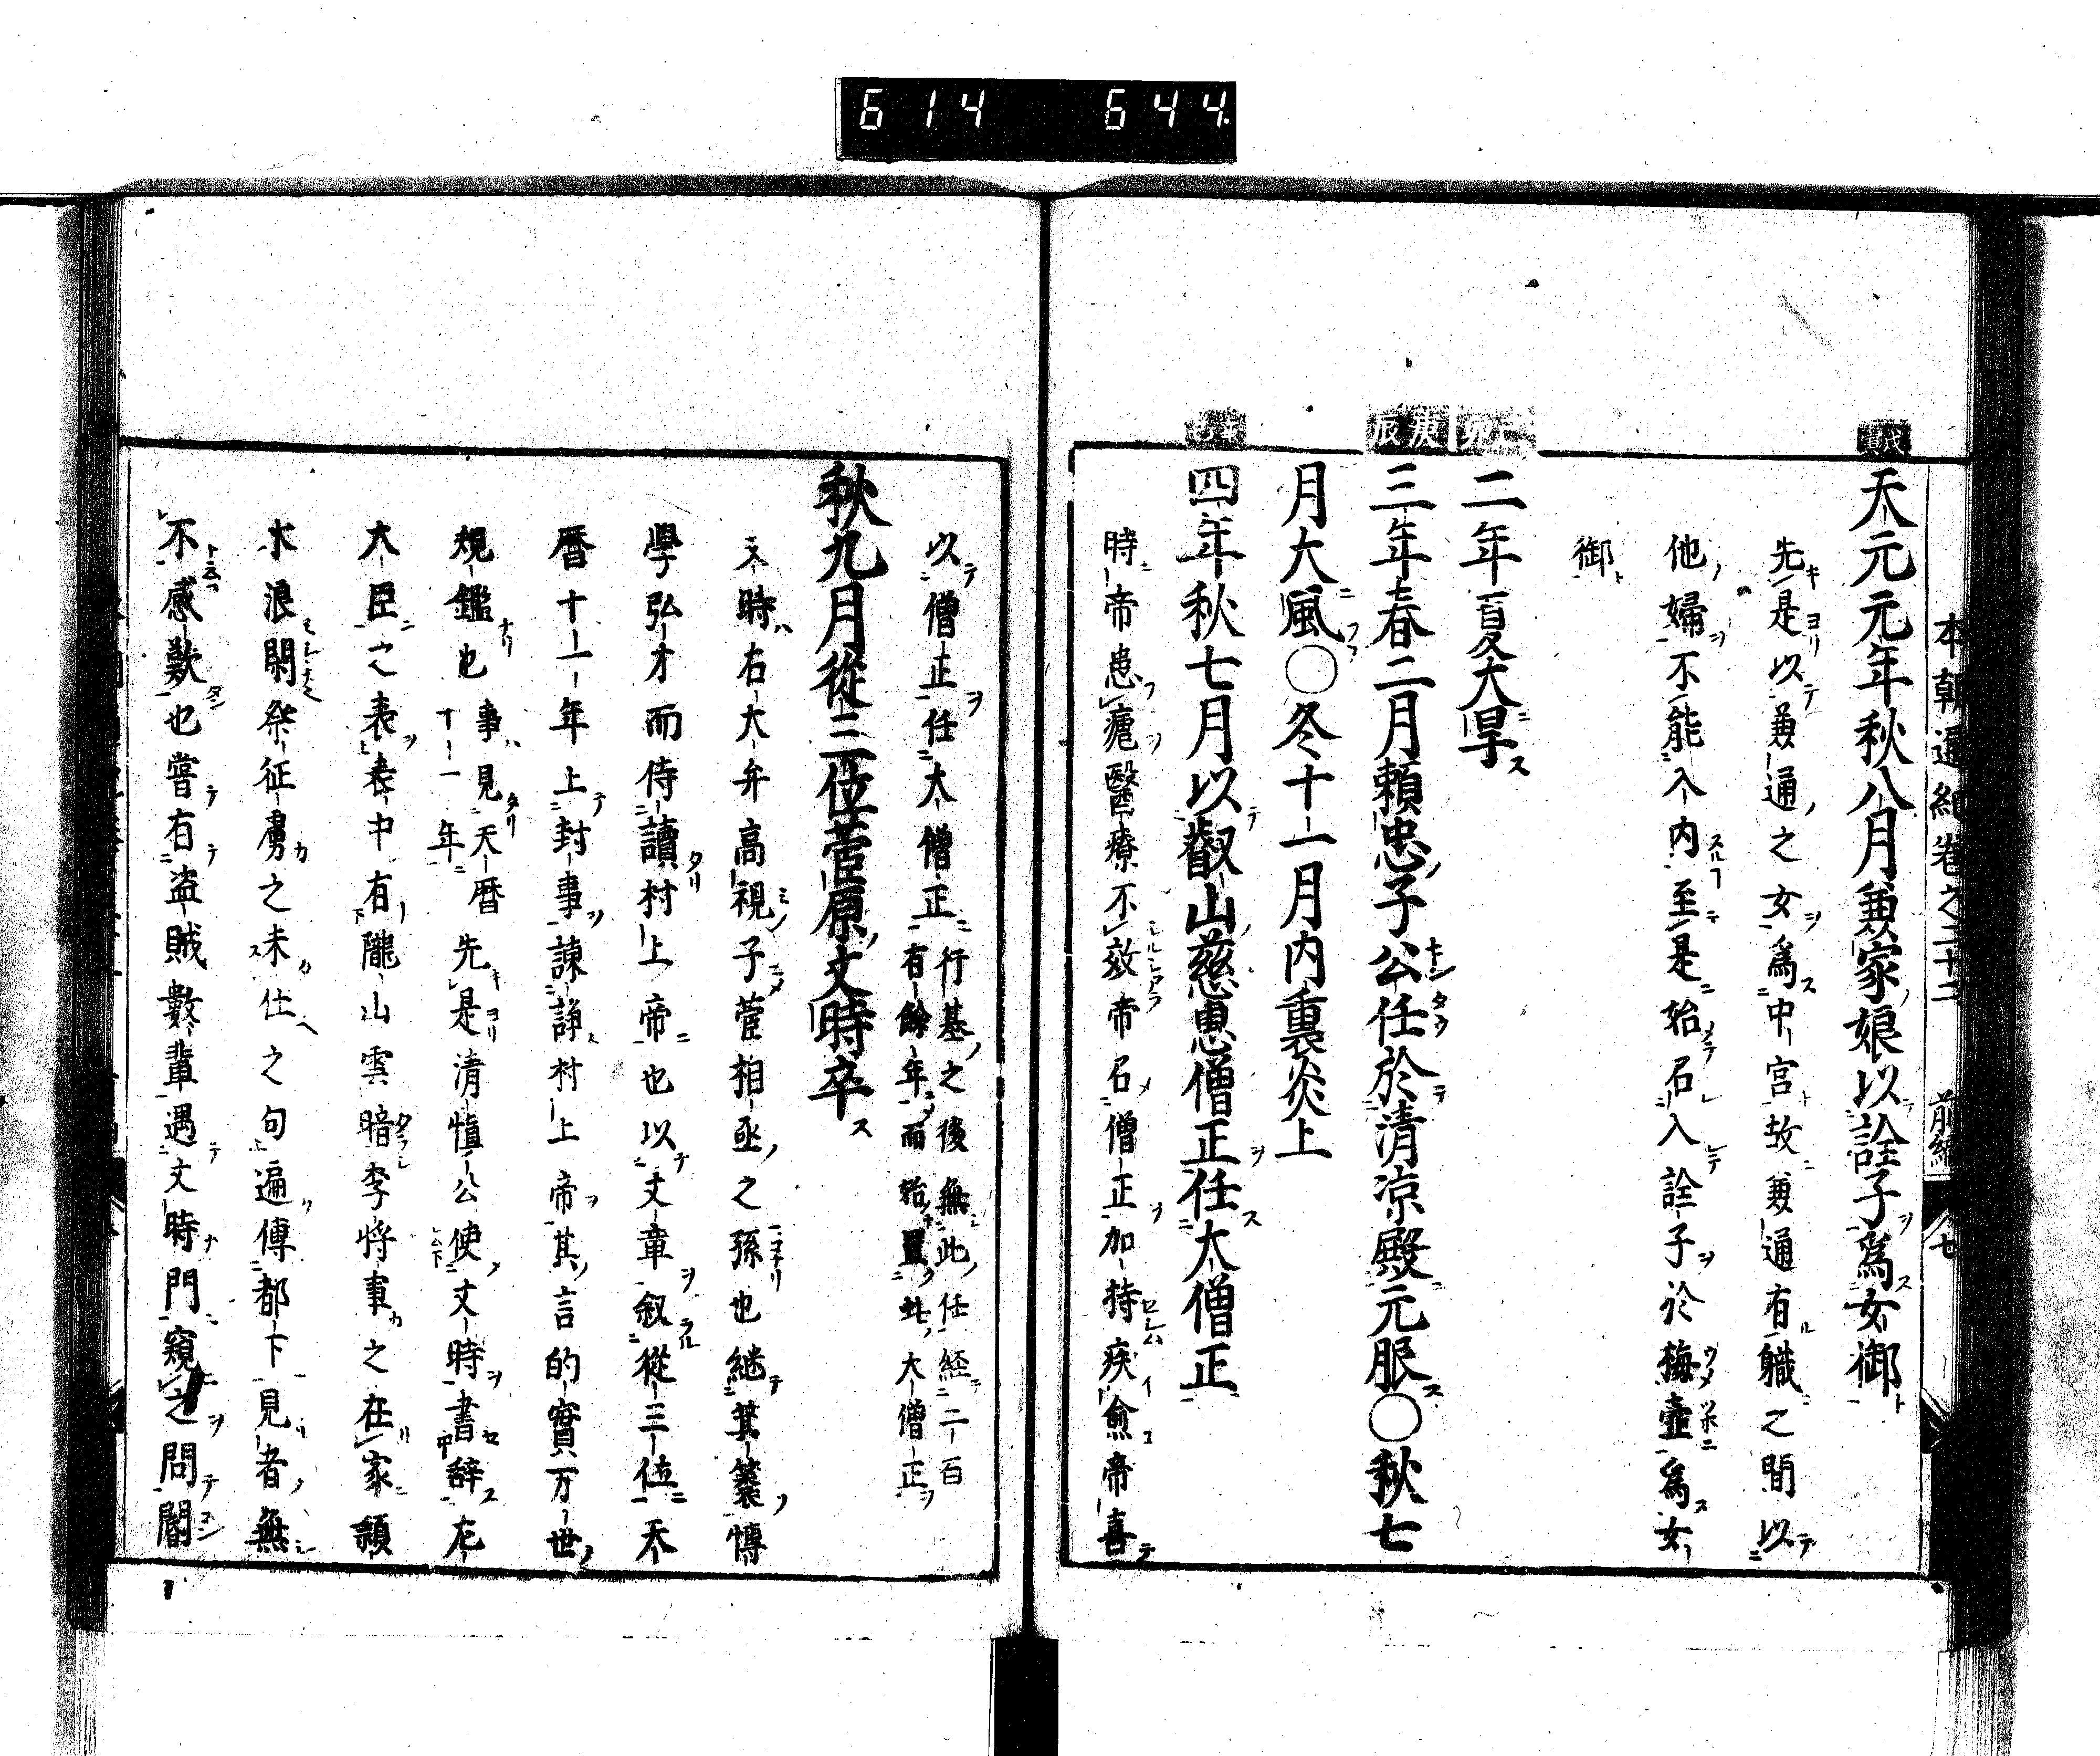 614 644
本朝通紀卷之二十二 前編 七
戊寅
天元元年秋八月兼家娘以詮子爲女御
先是以兼通之女爲中宮故兼通有職之間以
他婦不能入内至是始召入詮子於梅壺爲女
御
卯
二年夏大旱
庚辰
三年春二月頼忠子公任於清凉殿元服〇秋七
月大風〇冬十一月内裏炎上
四年秋七月以叡山慈惠僧正任大僧正
時帝患瘧醫療不效帝召僧正加持疾愈帝喜
以僧正任大僧正行基之後無此任経二百
有餘年而始置此大僧正
秋九月從三位菅原文時卒
文時右大弁高視子菅相丞之孫也継箕裘博
學弘才而侍讀村上帝也以文章叙從三位天
暦十一年上封事諫諍村上帝其言的實万世
規鑑也事見天暦
十一年先是清愼公使文時書辞左
大臣之表表中有隴山雲暗李将軍之在家潁
水浪閑祭征虜之未仕之句遍傳都下見者無
不感歎也嘗有盗賊數輩遇文時門窺之問閽